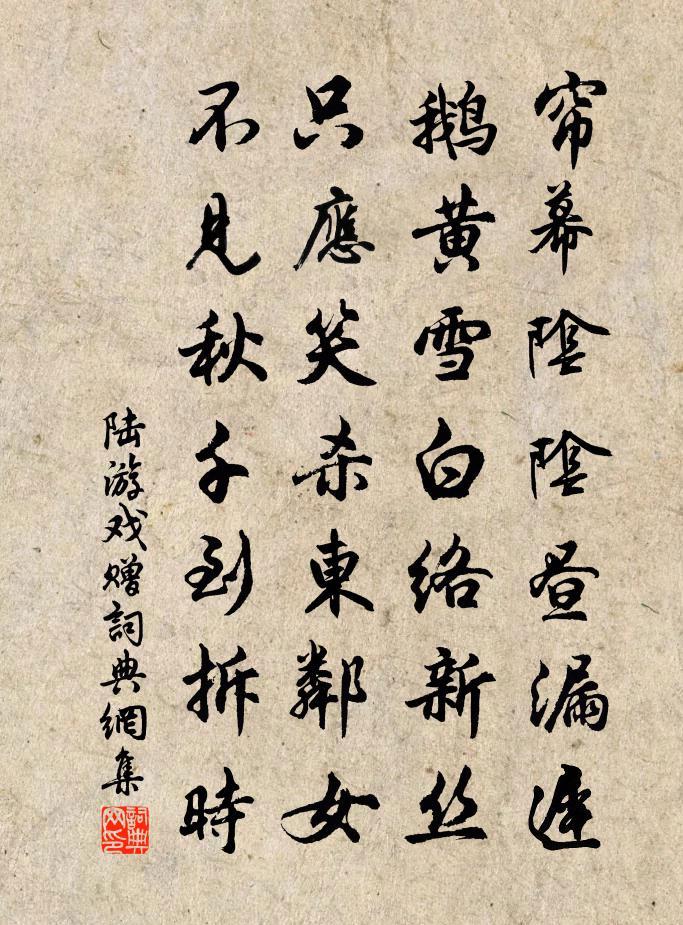 帘幕陰陰昼漏遲
鹅黄雪白络新丝
只應笑杀東鄰女
不見秋千到拆時
陆游戏赠詞典網集
詞典网印